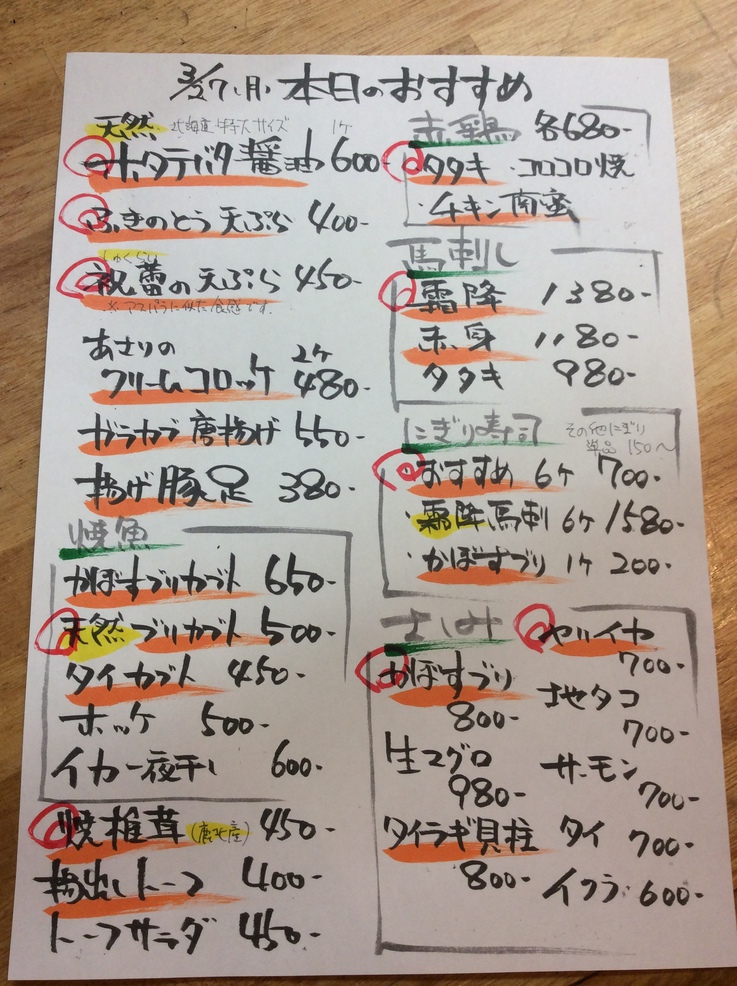 3/27(月) 本日のおすすめ
天然 北海道 特大サイズ 1ヶ
ホタテバター醤油 600-
ふきのとう 天ぷら 400-
しゅくらい
祝蕾の天ぷら 450-
※アスパラに似た食感です。
あさりの
クリームコロッケ 2ヶ 480-
ガラカブ 唐揚げ 550-
揚げ豚足 380-
焼魚
かぼすブリカブト 650-
天然ブリカブト 500-
タイカブト 450-
ホッケ 500-
イカ一夜干し 600-
焼椎茸(鹿北産) 450-
揚出しトーフ 400-
トーフサラダ 450-
赤鶏 各680-
タタキ ・コロコロ焼
・チキン南蛮
馬刺し
霜降 1380-
赤身 1180-
タタキ 980-
にぎり寿司 その他にぎり
単品 150〜
おすすめ 6ヶ 700-
・霜降馬刺 6ヶ 1580-
・かぼすブリ 1ヶ 200-
さしみ
かぼすブリ
800-
生マグロ
980-
タイラギ貝柱
800-
ヤリイカ
700-
地タコ
700-
サーモン
700-
タイ 700-
イクラ 600-